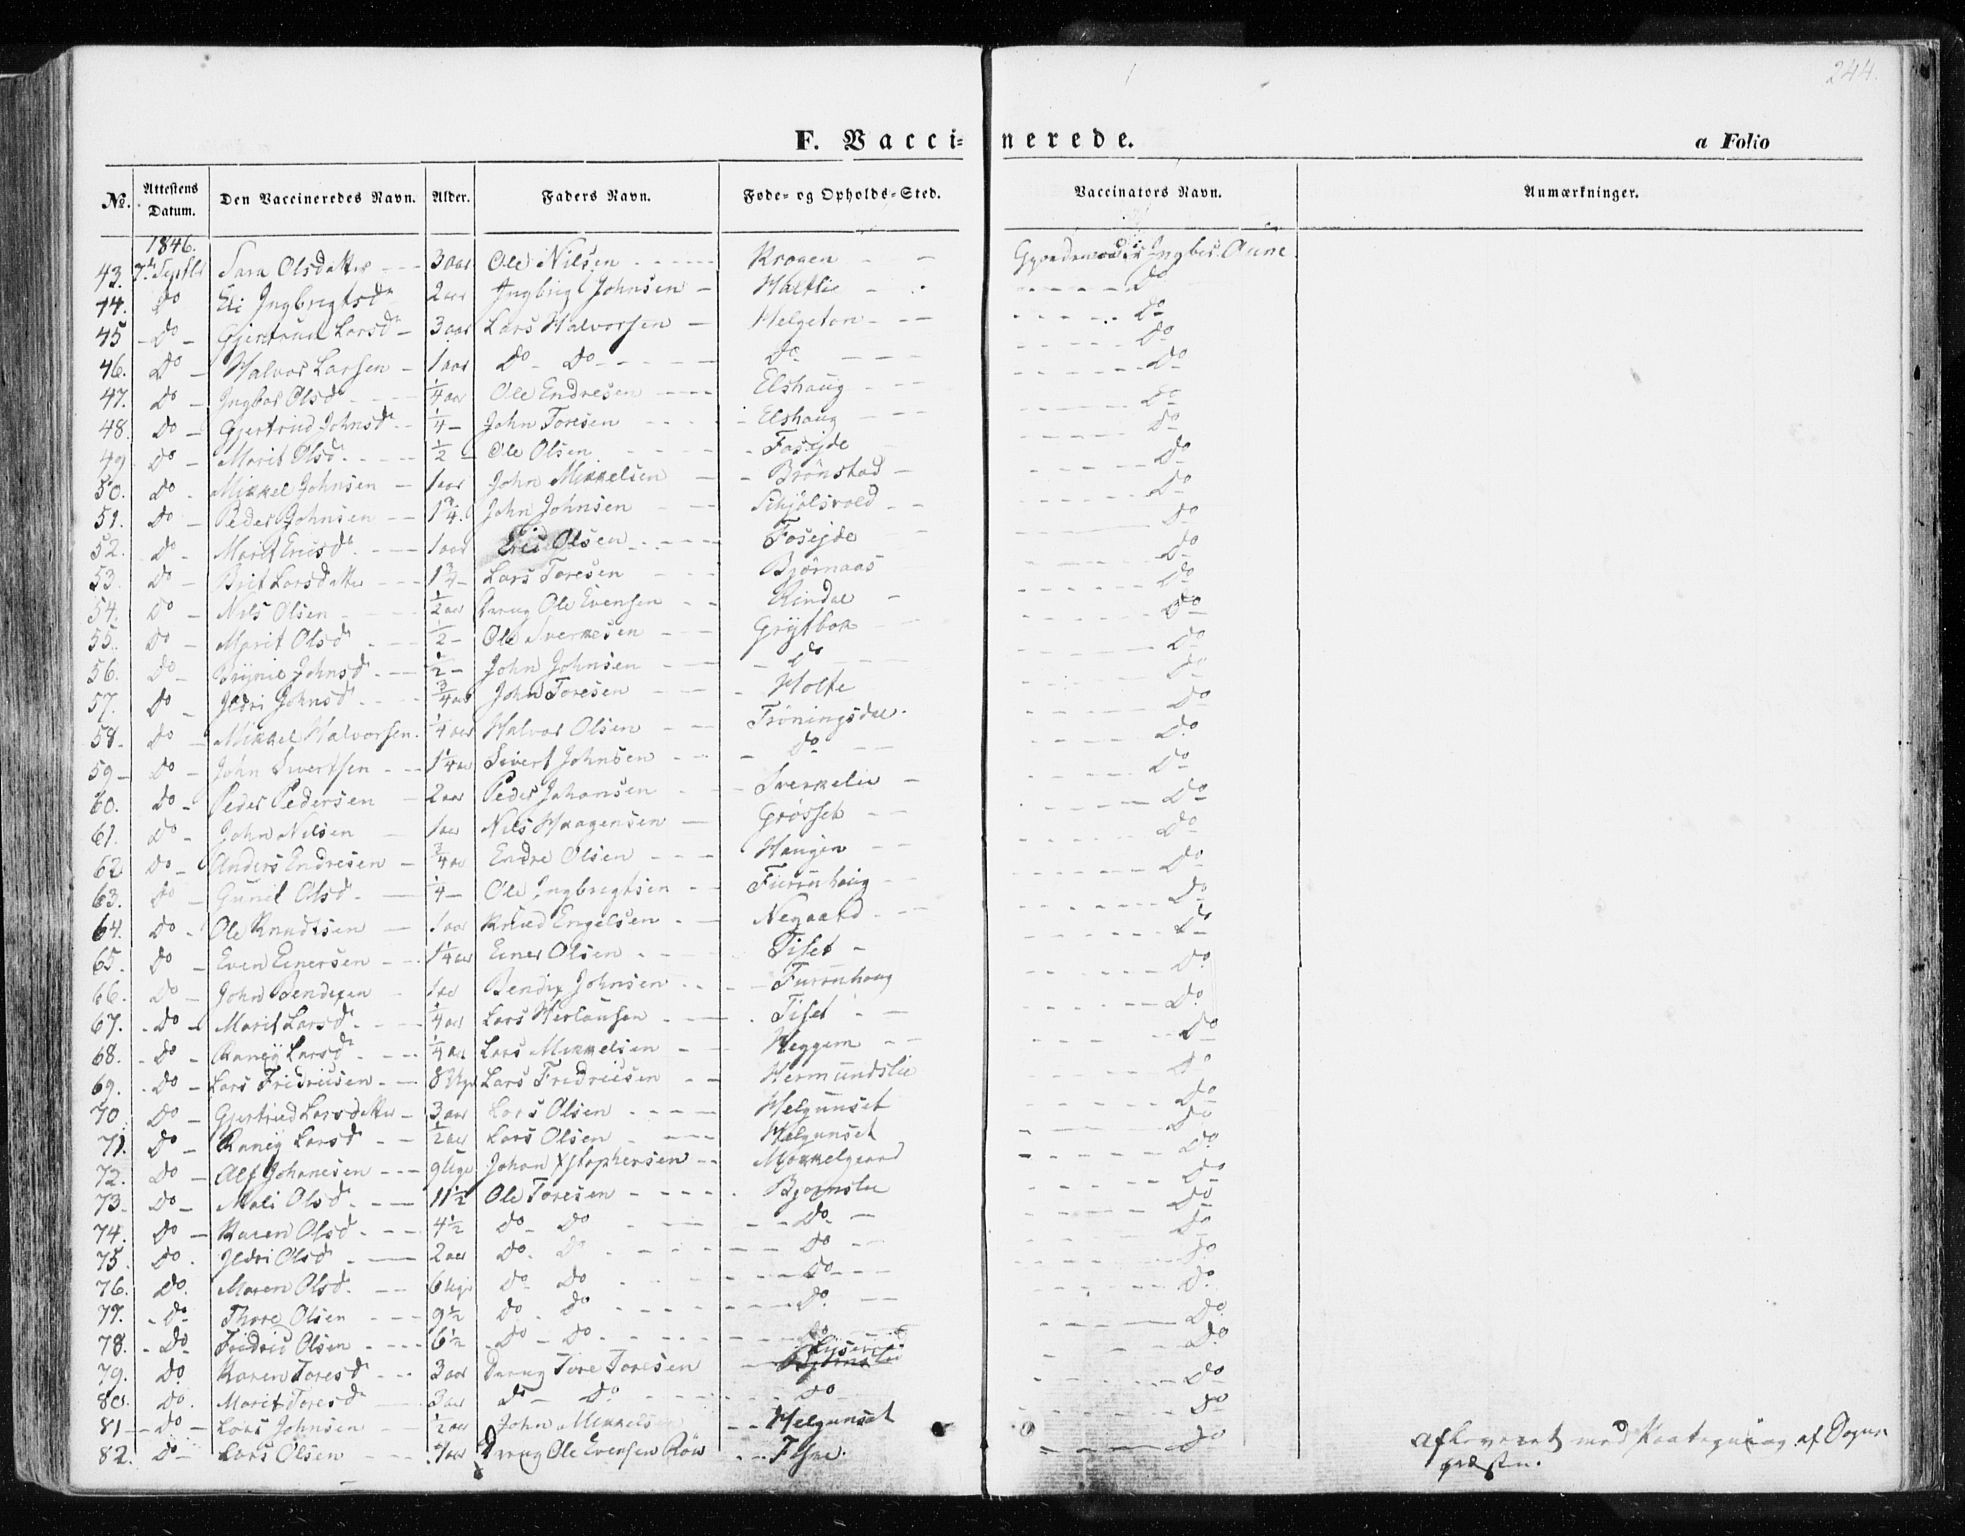 244.
F. Vaccinerede. a Folio
No. Attestens Datum. Den Vaccineredes Navn. Alder. Faders Navn. Føde- og Opholds-Sted. Vaccinators Navn. Anmærkninger.
1846.
43. 7de Septbr Sara Olsdatter 3 aar Ole Nilsen Kroken Gaardmand Aune
44. Do Eli Ingbrigtsd 2 aar Ingbrigt Johnsen Do
45 Do Gjertrud Larsd 3 aar Lars Halvorsen Helgeton Do
46. Do Halvor Larsen 1 aar Do Do Do Do
47. Do Ingbor Olsd 1/4 aar Ole Endresen Elshaug Do
48. Do Gjertrud Johnsd 1/4 John Toresen Elshaug Do
49 Do Marit Olsd 1/2 Ole Olsen Foseide Do
50. Do Mikkel Johnsen 1 aar John Mikkelsen Brønstad Do
51. Do Peder Johnsen 1 3/4 John Johnsen Schjølsvold Do
52. Do Marit Ericsd 1 aar Eric Olsen Foseide Do
53. Do Brit Larsdatter 1 3/4 Lars Toresen Bjørnaas Do
54. Do Nils Olsen 1/2 aar Ole Evensen Rindal Do
55. Do Marit Olsd 1/2 Ole Sverkesen Grytbak Do
56. Do Johnsd 1/2 John Johnsen Do Do
57. Do Ildri Johnsd 3/4 aar John Toresen Holte Do
58. Do Mikkel Halvorsen 1/4 aar Halvor Olsen Trøningsdal Do
59 Do John Sivertsen 1 1/4 aar Sivert Johnsen Do Do
60. Do Peder Pedersen 2 aar Peder Johansen Sverkelie Do
61. Do John Nilsen 1 aar Nils Haagensen Grøsset Do
62 Do Anders Endresen 3/4 aar Endre Olsen Haugen Do
63. Do Gunil Olsd 1/4 Ole Ingbrigtsen Furruhaug Do
64. Do Ole Knudtsen 1 aar Knud Engelsen Negaard Do
65. Do Even Einersen 1 1/4 aar Einer Olsen Tiset Do
66. Do John Bendixen 1 aar Bendix Johnsen Furruhaug Do
67. Do Marit Larsd 1/4 aar Lars Tiset Do
68. Do Raney Larsd 1/4 aar Lars Mikkelsen Heggem Do
69. Do Lars Fridricsen 8 Uger Lars Fredricsen Hermundslie Do
70 Do Gjertrud Larsdatter 3 aar Lars Olsen Helgunset Do
71. Do Raney Larsd 1/2 aar Lars Olsen Helgunset Do
72. Do Alf Johansen 9 Uger Johan Xstophersen Mokkelgaard Do
73. Do Mali Olsd 11 1/2 Ole Toresen Bjørnslie Do
74. Do Karen Olsd 4 1/2 Do Do Do Do
75. Do Ildri Olsd 2 aar Do Do Do Do
76. Do Maren Olsd 6 Uger Do Do Do Do
77. Do Thore Olsen 9 1/2 Do Do Do Do
78. Do Fridric Olsen 6 1/2 Do Do Do Do
79. Do Karen Toresd 3 aar Tore Toresen Do
80. Do Marit Toresd 3 aar Do Do Do Do
81 Do Lars Johnsen 1/2 aar John Mikkelsen Helgunset Do
82. Do Lars Olsen Ole Evensen Do
Afleveret med Paategning af Sogne-
præsten.